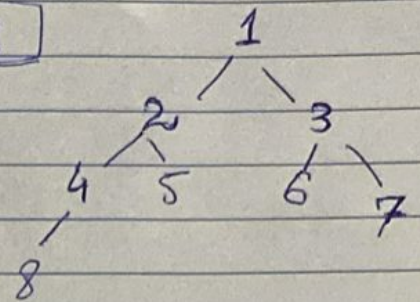 1
2 3
4 5 6 7
8